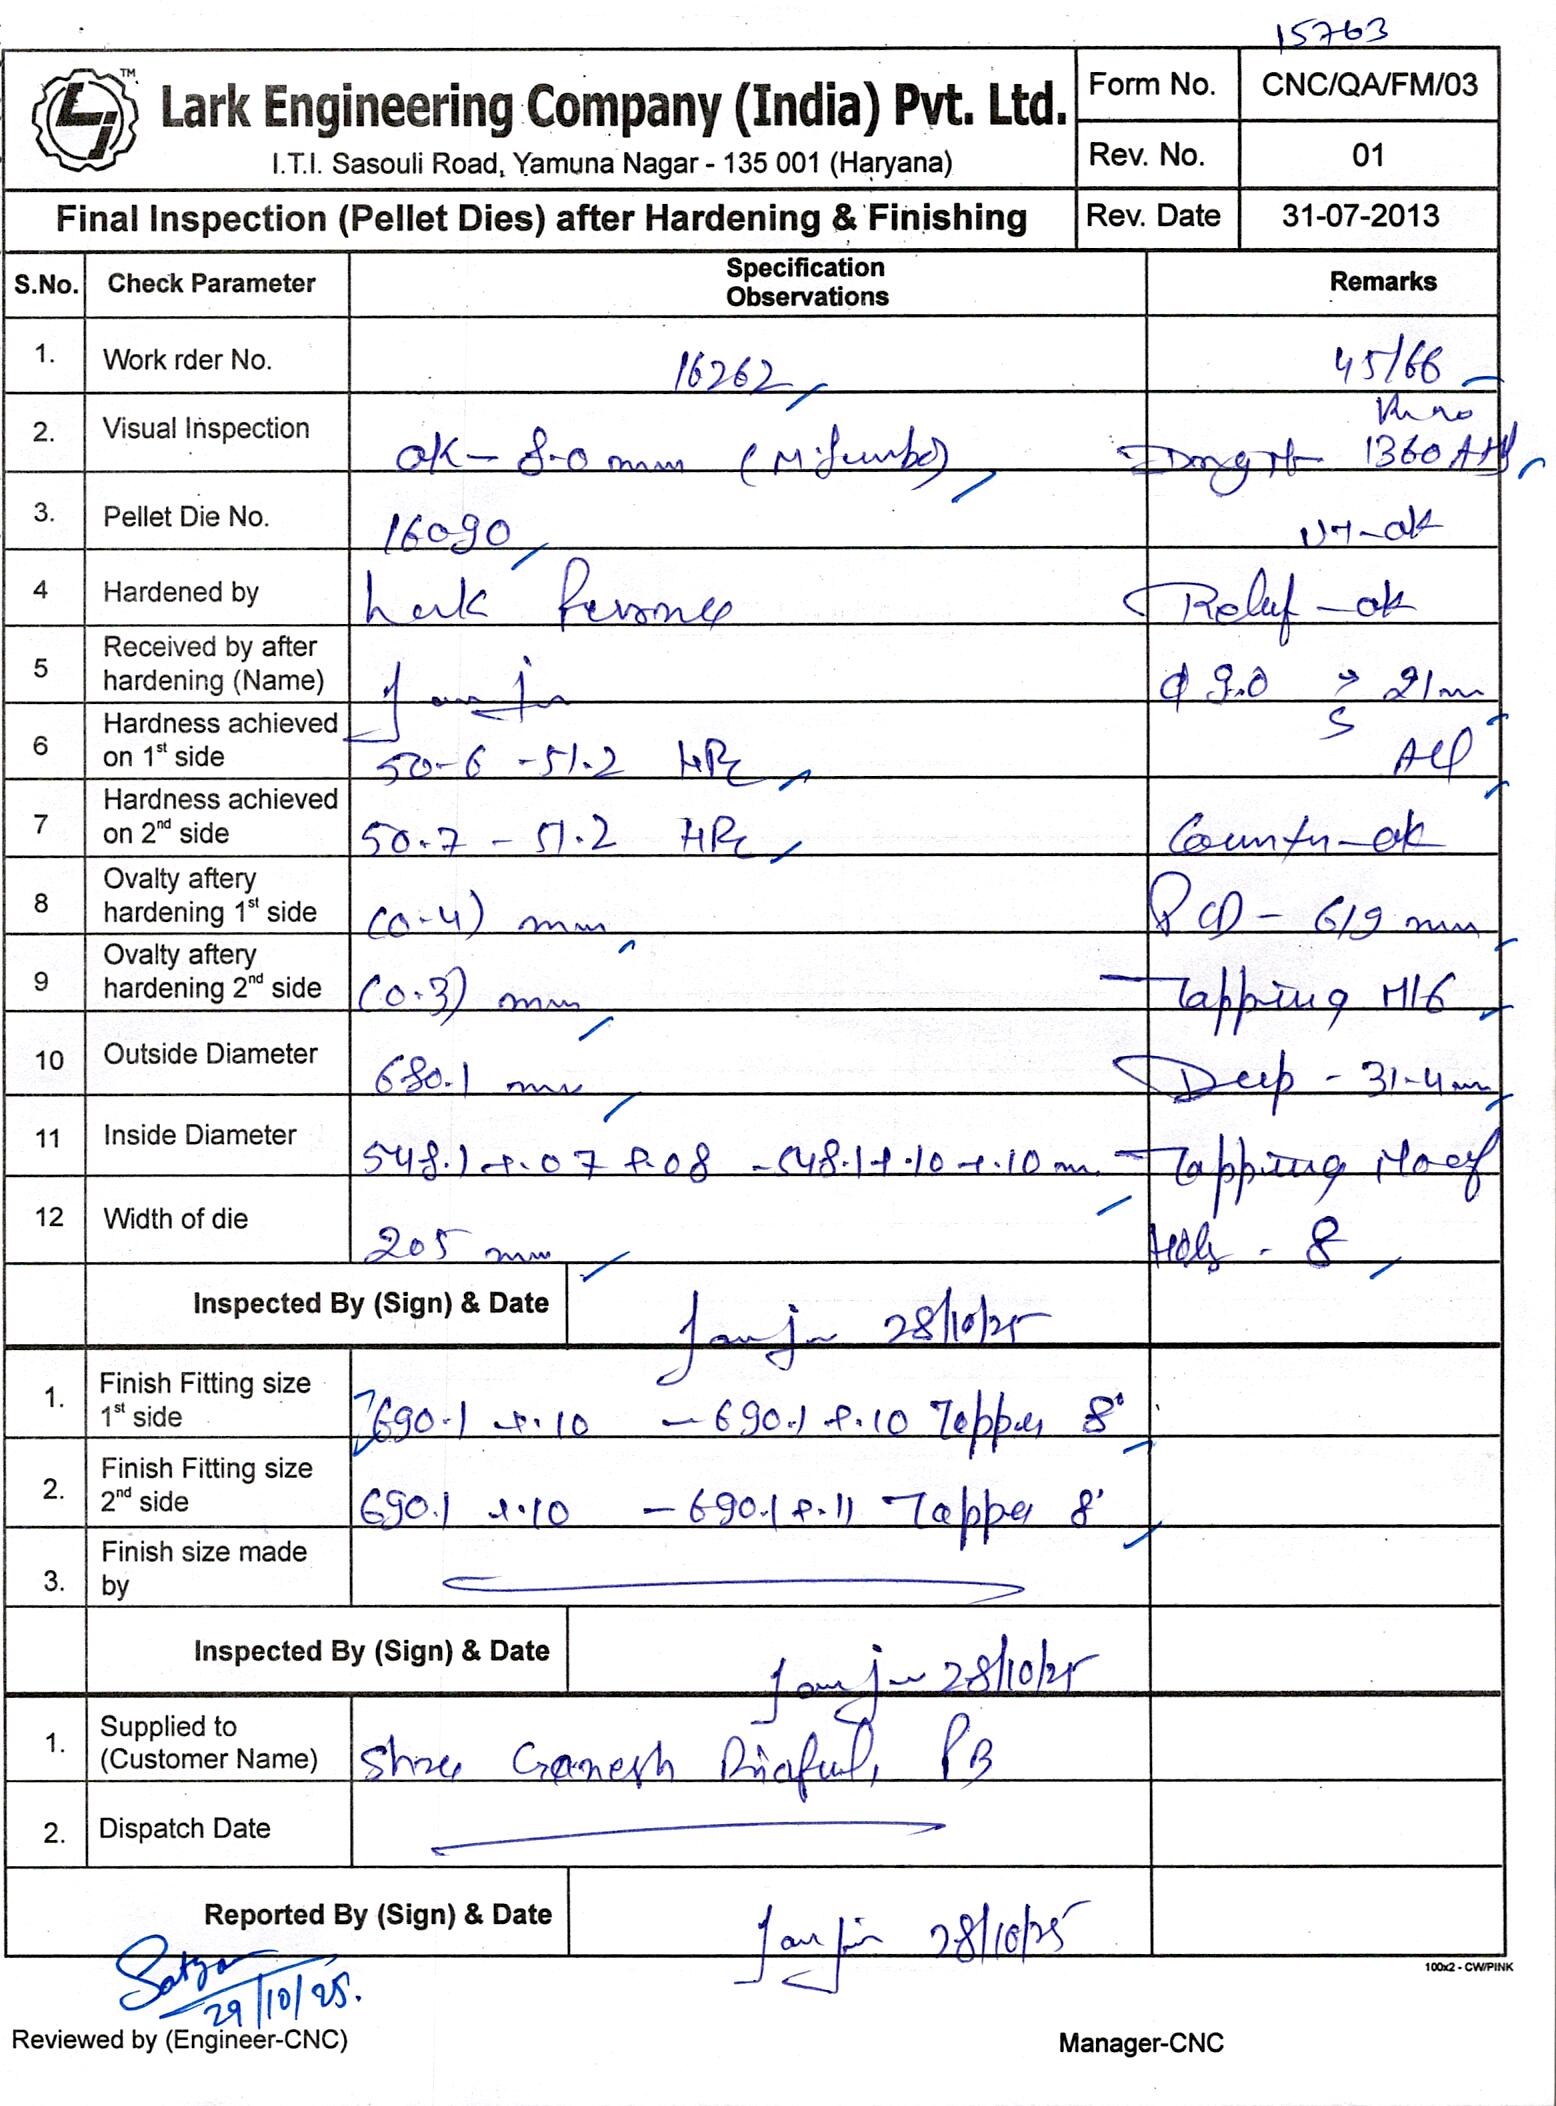 15763
TM
Lark Engineering Company (India) Pvt. Ltd.
I.T.I. Sasouli Road, Yamuna Nagar - 135 001 (Haryana)
Form No. CNC/QA/FM/03
Rev. No. 01
Final Inspection (Pellet Dies) after Hardening & Finishing
Rev. Date 31-07-2013
S.No. Check Parameter Specification Observations Remarks
1. Work rder No. 16262 45/66
2. Visual Inspection OK - 8.0 mm (M.Jumbo) 1360
3. Pellet Die No. 16090 UT-ok
4 Hardened by Lark Relief - ok
5 Received by after hardening (Name) φ 9.0 → 21 mm
6 Hardness achieved on 1st side 50.6 - 51.2 HRc All
7 Hardness achieved on 2nd side 50.7 - 51.2 HRc Counter - ok
8 Ovalty aftery hardening 1st side (0.4) mm PCD - 619 mm
9 Ovalty aftery hardening 2nd side (0.3) mm Tapping M16
10 Outside Diameter 680.1 mm Deep - 31.4 mm
11 Inside Diameter 548.1 +.07 +.08 - 548.1 +.10 +.10 m Tapping
12 Width of die 205 mm - 8
Inspected By (Sign) & Date 28/10/25
1. Finish Fitting size 1st side 690.1 +.10 - 690.1 +.10 Tapper 8°
2. Finish Fitting size 2nd side 690.1 +.10 - 690.1 +.11 Tapper 8°
3. Finish size made by
Inspected By (Sign) & Date 28/10/25
1. Supplied to (Customer Name) Shree Ganesh PB
2. Dispatch Date
Reported By (Sign) & Date 28/10/25
100x2 - CW/PINK
29/10/25.
Reviewed by (Engineer-CNC)
Manager-CNC